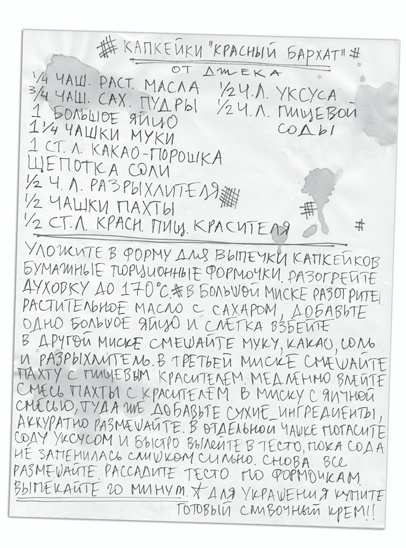 # КАПКЕЙКИ "КРАСНЫЙ БАРХАТ" #
ОТ ДЖЕКА
1/4 ЧАШ. РАСТ. МАСЛА 1/2 Ч.Л. УКСУСА
3/4 ЧАШ. САХ. ПУДРЫ 1/2 Ч.Л. ПИЩЕВОЙ
1 БОЛЬШОЕ ЯЙЦО СОДЫ
1 1/4 ЧАШКИ МУКИ
1 СТ. Л. КАКАО-ПОРОШКА
ЩЕПОТКА СОЛИ
1/2 Ч. Л. РАЗРЫХЛИТЕЛЯ
1/2 ЧАШКИ ПАХТЫ
1/2 СТ. Л. КРАСН. ПИЩ. КРАСИТЕЛЯ
УЛОЖИТЕ В ФОРМУ ДЛЯ ВЫПЕЧКИ КАПКЕЙКОВ
БУМАЖНЫЕ ПОРЦИОННЫЕ ФОРМОЧКИ. РАЗОГРЕЙТЕ
ДУХОВКУ ДО 170°С. # В БОЛЬШОЙ МИСКЕ РАЗОТРИТЕ
РАСТИТЕЛЬНОЕ МАСЛО С САХАРОМ, ДОБАВЬТЕ
ОДНО БОЛЬШОЕ ЯЙЦО И СЛЕГКА ВЗБЕЙТЕ
В ДРУГОЙ МИСКЕ СМЕШАЙТЕ МУКУ, КАКАО, СОЛЬ
И РАЗРЫХЛИТЕЛЬ. В ТРЕТЬЕЙ МИСКЕ СМЕШАЙТЕ
ПАХТУ С ПИЩЕВЫМ КРАСИТЕЛЕМ. МЕДЛЕННО ВЛЕЙТЕ
СМЕСЬ ПАХТЫ С КРАСИТЕЛЕМ В МИСКУ С ЯИЧНОЙ
СМЕСЬЮ, ТУДА ЖЕ ДОБАВЬТЕ СУХИЕ ИНГРЕДИЕНТЫ,
АККУРАТНО РАЗМЕШАЙТЕ. В ОТДЕЛЬНОЙ ЧАШКЕ ПОГАСИТЕ
СОДУ УКСУСОМ И БЫСТРО ВЫЛЕЙТЕ В ТЕСТО, ПОКА СОДА
НЕ ЗАПЕНИЛАСЬ СЛИШКОМ СИЛЬНО. СНОВА ВСЕ
РАЗМЕШАЙТЕ. РАССАДИТЕ ТЕСТО ПО ФОРМОЧКАМ.
ВЫПЕКАЙТЕ 20 МИНУТ. * ДЛЯ УКРАШЕНИЯ КУПИТЕ
ГОТОВЫЙ СЛИВОЧНЫЙ КРЕМ!!